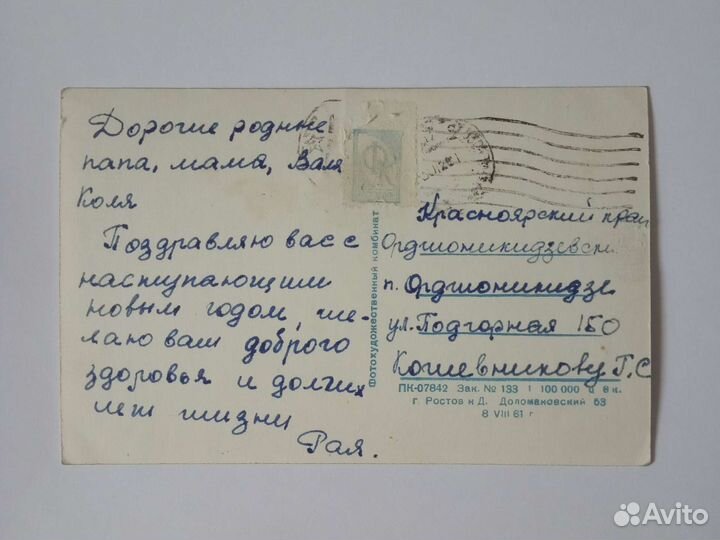 Дорогие родные
папа, мама, Валя
Коля
Поздравляю вас с
наступающим
новым годом, же-
лаю вам доброго
здоровья и долгих
лет жизни
Рая.
Фотохудожественный комбинат
Красноярский край
Орджоникидзевски
п. Орджоникидзе
ул. Подгорная 150
Кошевникову Г.С
ПК-07842 Зак. № 133 1 100 000 экз.
г. Ростов н Д. Доломановский 53
8 VIII 61 г
Avito